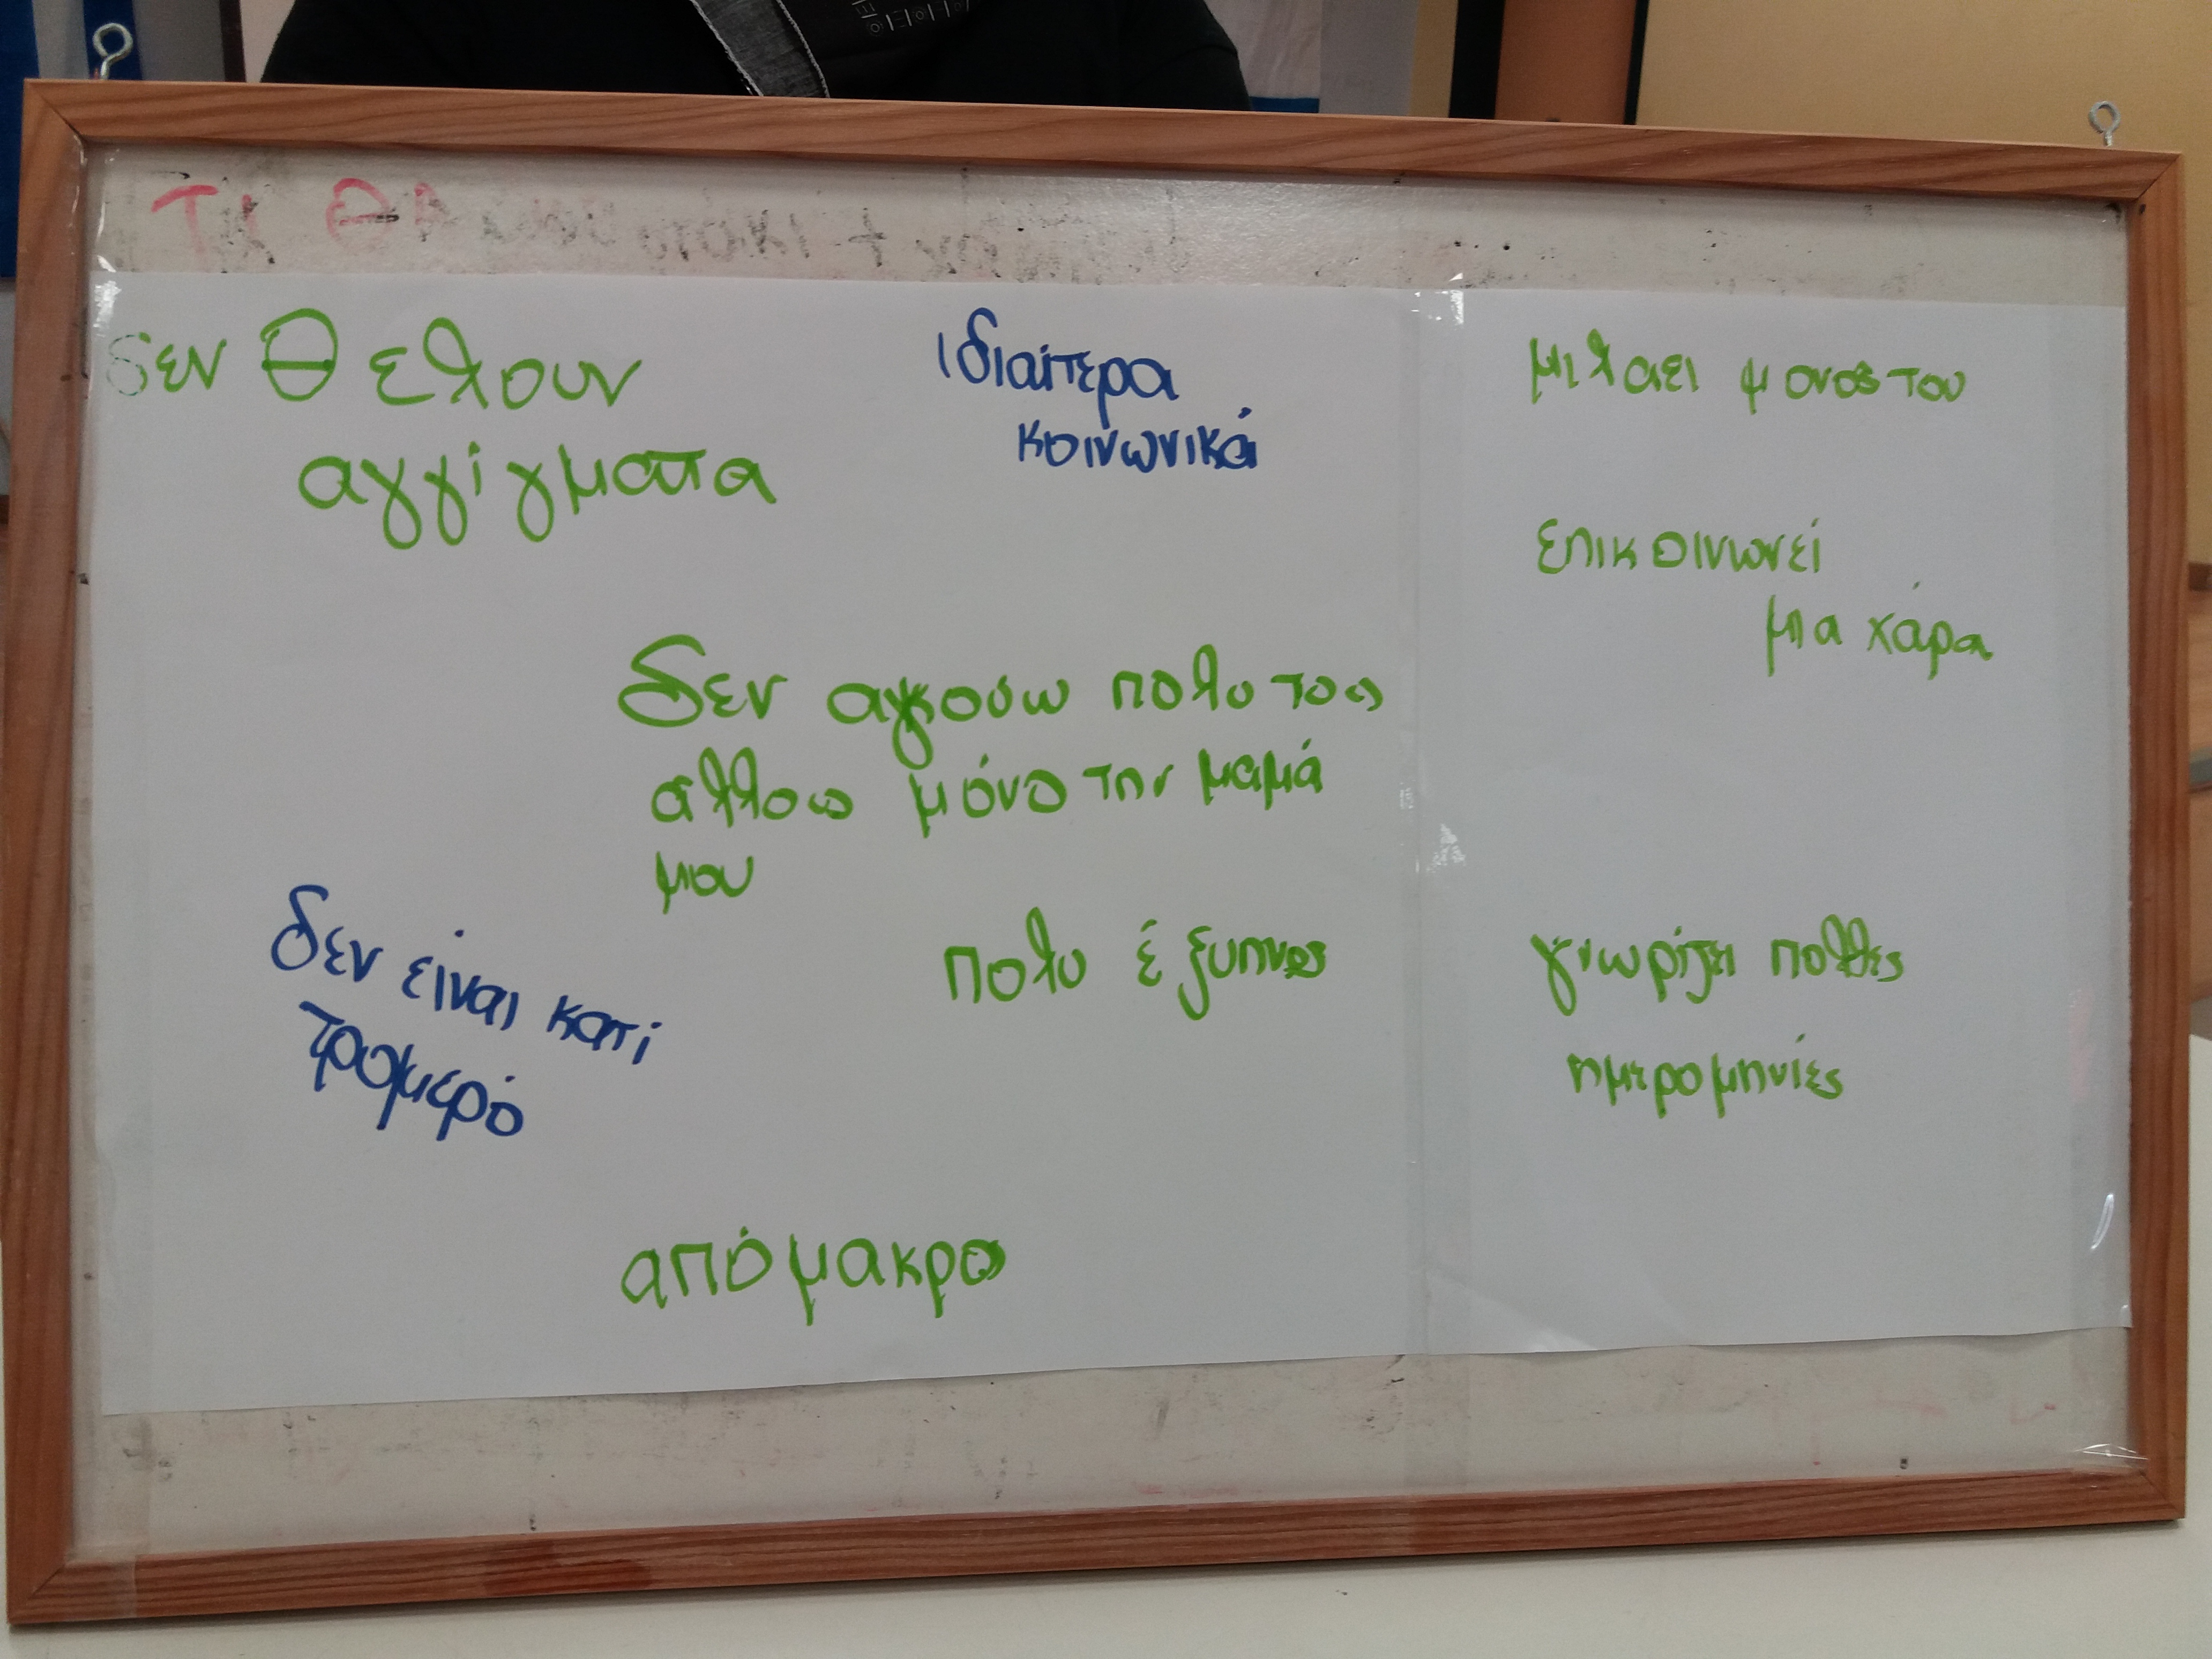 Τι ΘΑ
δεν Θελουν
αγγίγματα
ιδιαίτερα
κοινωνικά
μιλαει μονος του
επικοινωνεί
μια χάρα
δεν ακούω πολυ τους
άλλους μόνο την μαμά
μου
δεν είναι κατί
τρομερό
πολυ έξυπνος
γνωρίζει πολλές
ημερομηνίες
απόμακρο